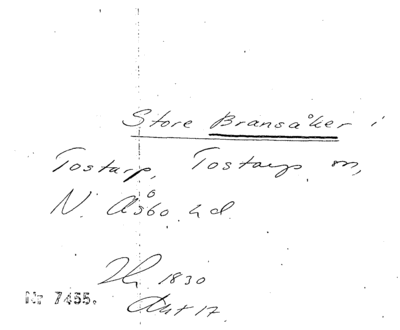 Store Bransåker i
Tostarp, Tostarps m,
N. Åsbo hd.
1830
Nr 7455. Akt 17